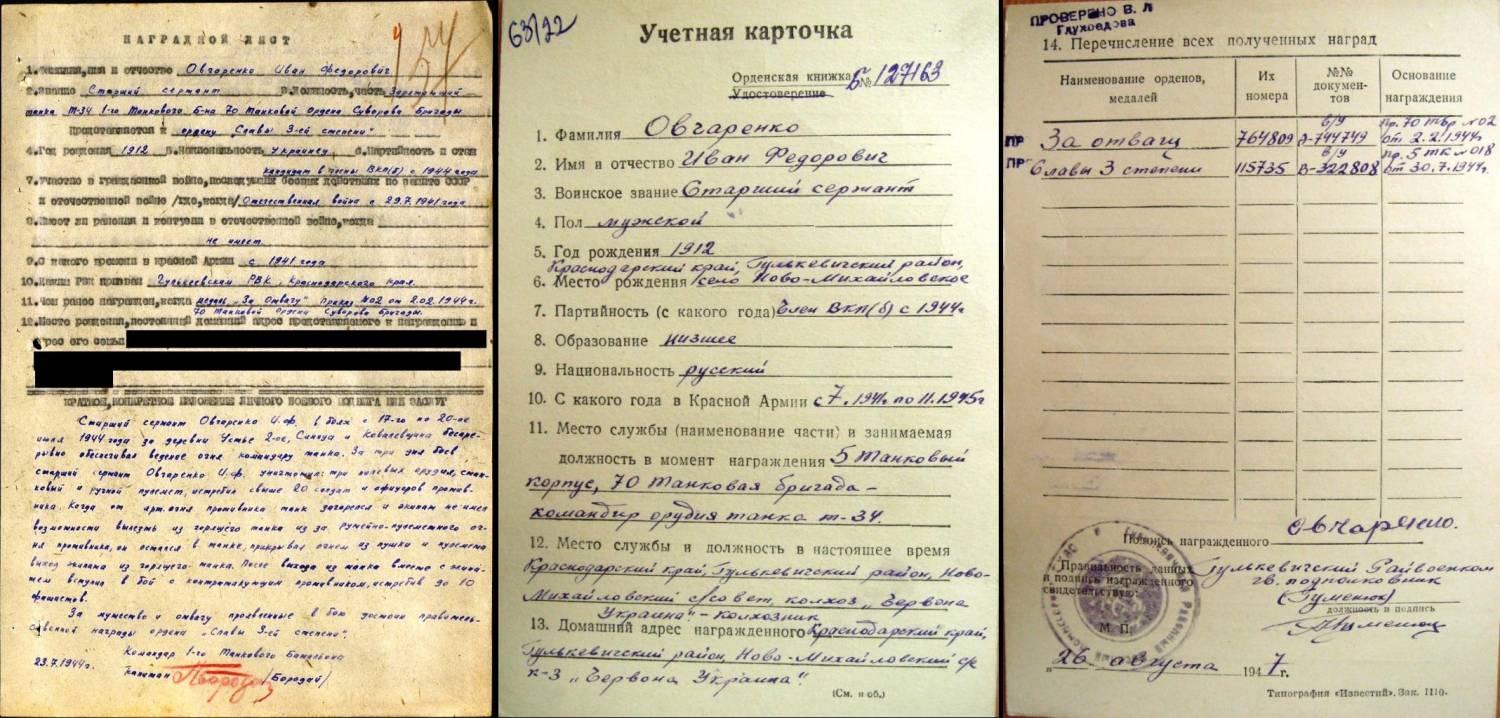 НАГРАДНОЙ ЛИСТ
1.Фамилия,имя и отчество Овчаренко Иван Федорович
2.Звание Старший сержант 3.Должность,часть Заряжающий
танка Т-34 1-го Танкового Б-на 70 Танковой Ордена Суворова Бригады
Представляется к ордену "Славы 3-ей степени"
4.Год рождения 1912 5.Национальность Украинец 6.Партийность и стаж
кандидат в члены ВКП(б) с 1944 года
7.Участие в гражданской войне,последующих боевых действиях по защите СССР
и отечественной войне /где,когда/ Отечественная война с 29.7.1941 года
8.Имеет ли ранения и контузии в отечественной войне,когда
не имеет.
9.С какого времени в красной Армии с 1941 года
10.Каким РВК призван Гулькевским РВК, Краснодарского края.
11.Чем ранее награжден,когда медаль "За Отвагу" Приказ №02 от 2.02.1944г.
70 Танковой Ордена Суворова Бригады.
12.Место рождения,постоянный домашний адрес представляемого к награждению и
адрес его семьи
КРАТКОЕ,КОНКРЕТНОЕ ИЗЛОЖЕНИЕ ЛИЧНОГО БОЕВОГО ПОДВИГА ИЛИ ЗАСЛУГ
Старший сержант Овчаренко И.Ф. в боях с 17-го по 20-ое
июля 1944 года за деревни Устье 2-ое, и Ковалевщина беспре-
рывно обеспечивал ведение огня командиру танка. За три дня боев
старший сержант Овчаренко И.Ф. уничтожил: три полевых орудия, стан-
ковый и ручной пулемет, истребил свыше 20 солдат и офицеров против-
ника. Когда от арт.огня противника танк загорелся и экипаж не имел
возможности вылезть из горящего танка из за ружейно-пулеметного ог-
ня противника, он остался в танке, прикрывая огнем из пушки и пулемета
выход экипажа из горящего танка. После выхода из танка вместе с экипа-
жем вступил в бой с контратакующим противником, истребив до 10
фашистов.
За мужество и отвагу проявленные в бою достоин правитель-
ственной награды ордена "Славы 3-ей степени".
Командир 1-го Танкового Батальона
23.7.1944г. Капитан /Бородий/
63/22
Учетная карточка
Орденская книжка Б№ 127163
Удостоверение
1. Фамилия Овчаренко
2. Имя и отчество Иван Федорович
3. Воинское звание Старший сержант
4. Пол мужской
5. Год рождения 1912
Краснодарский край, Гулькевичский район,
6. Место рождения село Ново-Михайловское
7. Партийность (с какого года) Член ВКП(б) с 1944г
8. Образование низшее
9. Национальность русский
10. С какого года в Красной Армии с 7.1941. по 11.1945г
11. Место службы (наименование части) и занимаемая
должность в момент награждения 5 Танковый
корпус, 70 танковая бригада –
командир орудия танка т-34.
12. Место службы и должность в настоящее время
Краснодарский край, Гулькевичский район, Ново-
Михайловский с/совет, колхоз "Червона
Украина" - колхозник
13. Домашний адрес награжденного Краснодарский край,
Гулькевичский район, Ново-Михайловский с/с
к-з "Червона Украина".
(См. н об.)
ПРОВЕРЕНО В. Л
Глухоедова
14. Перечисление всех полученных наград
Наименование орденов, медалей Их номера №№ докумен-тов Основание награждения
ПР За отвагу 764809 б/у А-744749 Пр. 70 тбр №02 от 2.2.1944г.
ПР Славы 3 степени 115735 б/у В-322808 Пр. 5 тк №018 от 30.7.1944г.
Подпись награжденного Овчаренко.
Правильность данных
и подпись награжденного
свидетельствую:
Гулькевичский Райвоенком
гв. подполковник
(Гуменюк)
должность и подпись
М. П.
"26" августа 1947 г.
Типография «Известий». Зак. 1110.